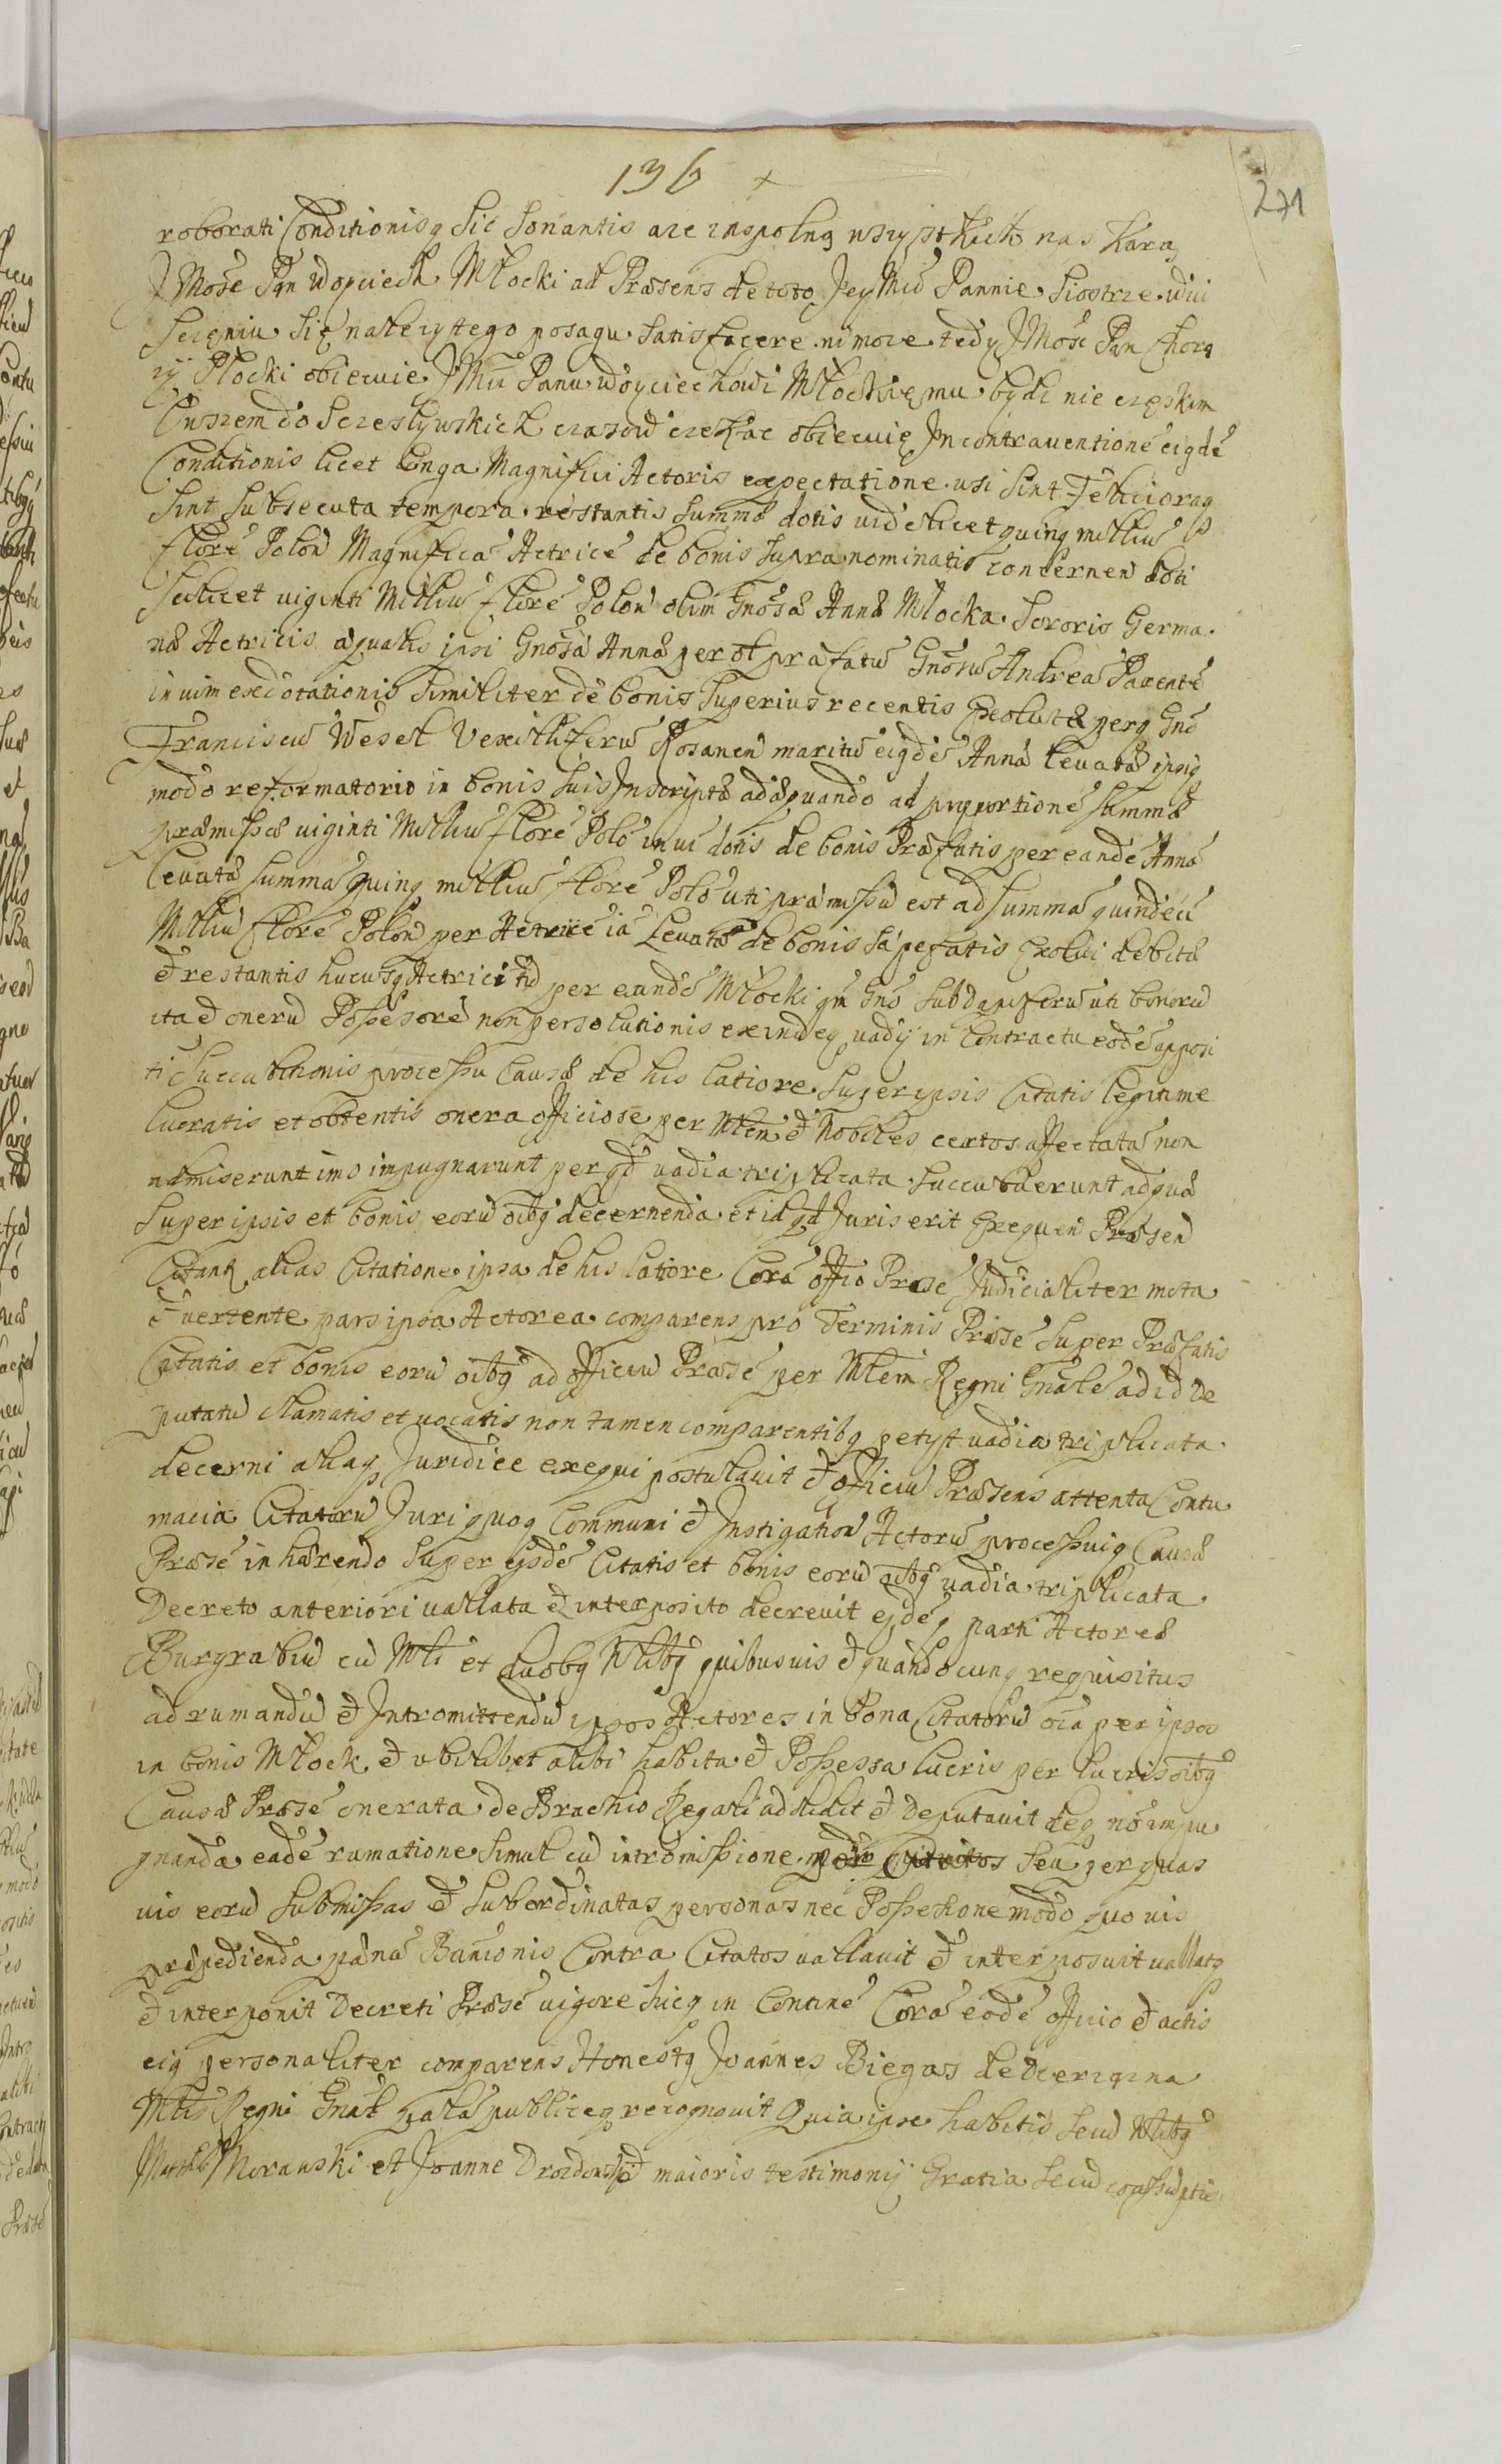 136 +
271
roborati Conditionisq Sic Sonantis aze inspolną wszystkich nas Karą
J Mość Pan Woyciech Młocki ad Præsens de toto Jey Mci Pannie Siostrze
Sczęniu Się należytego posagu Satisfacere ni może tedy J Mość Pan Chorą
ży Płocki obiecuie J Mci Panu Woyciechowi Młockiemu bydź nie ciężkim
Owszem do Sczęslywskich czasow czekac obiecuię In contraventionẽ eigdẽ
Conditionis licet longa Magnifici Actoris expectatione usi Sint Felicioraq
Sint Subsecuta tempora restantis Summæ dotis videlicet quinq milliũ
florẽ Polon Magnificã Actricẽ de bonis Supranominatis concernen doti
Scilicet viginti Milliũ florẽ Polon olim Gnosã Annæ Młocka Sororis Germa
næ Actricis æqualis ipsi Gnosã Annæ per ol præfatũ Gnosũ Andreã Parentẽ
in vim exdotationis Similiter de bonis Superius recentis Exolutæ perq Gnõ
Franciscũ Wesel Vexilliferũ Rosanen maritũ eigdẽ Annã levatæ ipsiq
modo reformatorio in bonis Suis Inscriptæ adæquando ad proportionẽ Summæ
præmissæ viginti Milliũ florẽ Polõ in vi dotis de bonis Præfatis per eandẽ Annã
levatã Summã quinq milliũ florẽ Polõ uti præmissũ est ad Summã quindeci
Milliũ florẽ Polon per Actricẽ iã Levatã de bonis Sæpefatis Exolvi debitã
et restantis hucusq Actrici tũ per eundẽ Młocki qm Gnõ Subdapiferũ uti bonorũ
ita et onerũ Possesorẽ non persolutionis exindeq vadij in Contractu eodẽ apposi
ti Succubitionis processu Causæ de his latiore Super ipsis Citatis legitime
lucratis et obtentis onera officiose per Mlem et Nobiles certos affectata non
admiserunt imo impugnarunt per qd vadia triplicata Succubuerunt ad quã
Super ipsis et bonis eorũ oibq decernenda et id qd Juris erit Exequen Præsen
Citanr alias Citatione ipsa de his latiore Corã offio Præsẽ Judicialiter mota
et vertente pars ipsa Actorea comparens pro Terminis Præsẽ Super Præfatis
Citatis et bonis eorũ oibq ad officiũ Præsẽ per Mlem Regni Gnalẽ ad id de
putatũ clamatis et vocatis non tamen comparentibq petyt vadia triplicata
decerni aliaq Juridice exequi postulavit et officiũ Præsens attenta Contu
macia Citatorũ Juri quoq Communi et Instigation Actorũ processuiq Causæ
Præsẽ inhærendo Super ejsdẽ Citatis et bonis eorũ oibq vadia triplicata
Decreto anteriori vallata et interposito decrevit ejdẽq parti Actoreæ
Burgrabiũ cũ Mli et duobq Nlibq quibusvis et quandocunq requisitus
ad rumandũ et Intromittendũ ipsos Actores in bona Citatorũ oia per ipsos
in bonis Młock et ubilibet alibi habita et Possessa lucris per lucris oibq
Causæ Præsẽ onerata de Brachio Regali addidit et deputavit deq nõ impu
gnanda eadẽ rumatione Simul cũ intromissione per Citatos Seu per quas
vis eorũ Submissas et Subordinatas personas nec Possessione modo quo vis
præpedienda pænã Bannionis Contra Citatos vallavit et interposuit vallatq
et interponit Decreti Præsẽ vigore hicq in Continẽ Corã eodẽ officio et actis
eiq personaliter comparens Honestq Joannes Biegas de Dzierzązna
Mlis Regni Gnał palã publiceq recognovit Quia ipse habitis Secũ Nlibq
Matthia Morawski et Joanne Drozdowski et maioris testimonij Gratia Secũ consũptis